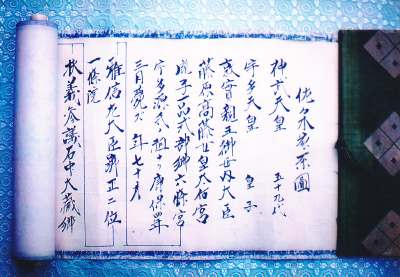 佐々木家系圖
神武天皇 五十九代
宇多天皇 皇子
敦實親王御母内大臣
藤原高藤女皇太后宮
胤子一品式部卿六條宮
宇多源氏祖 康保四年
三月薨ス 年七十五
雅信左大臣 正二位
一條院
扶義参議右中大蔵卿